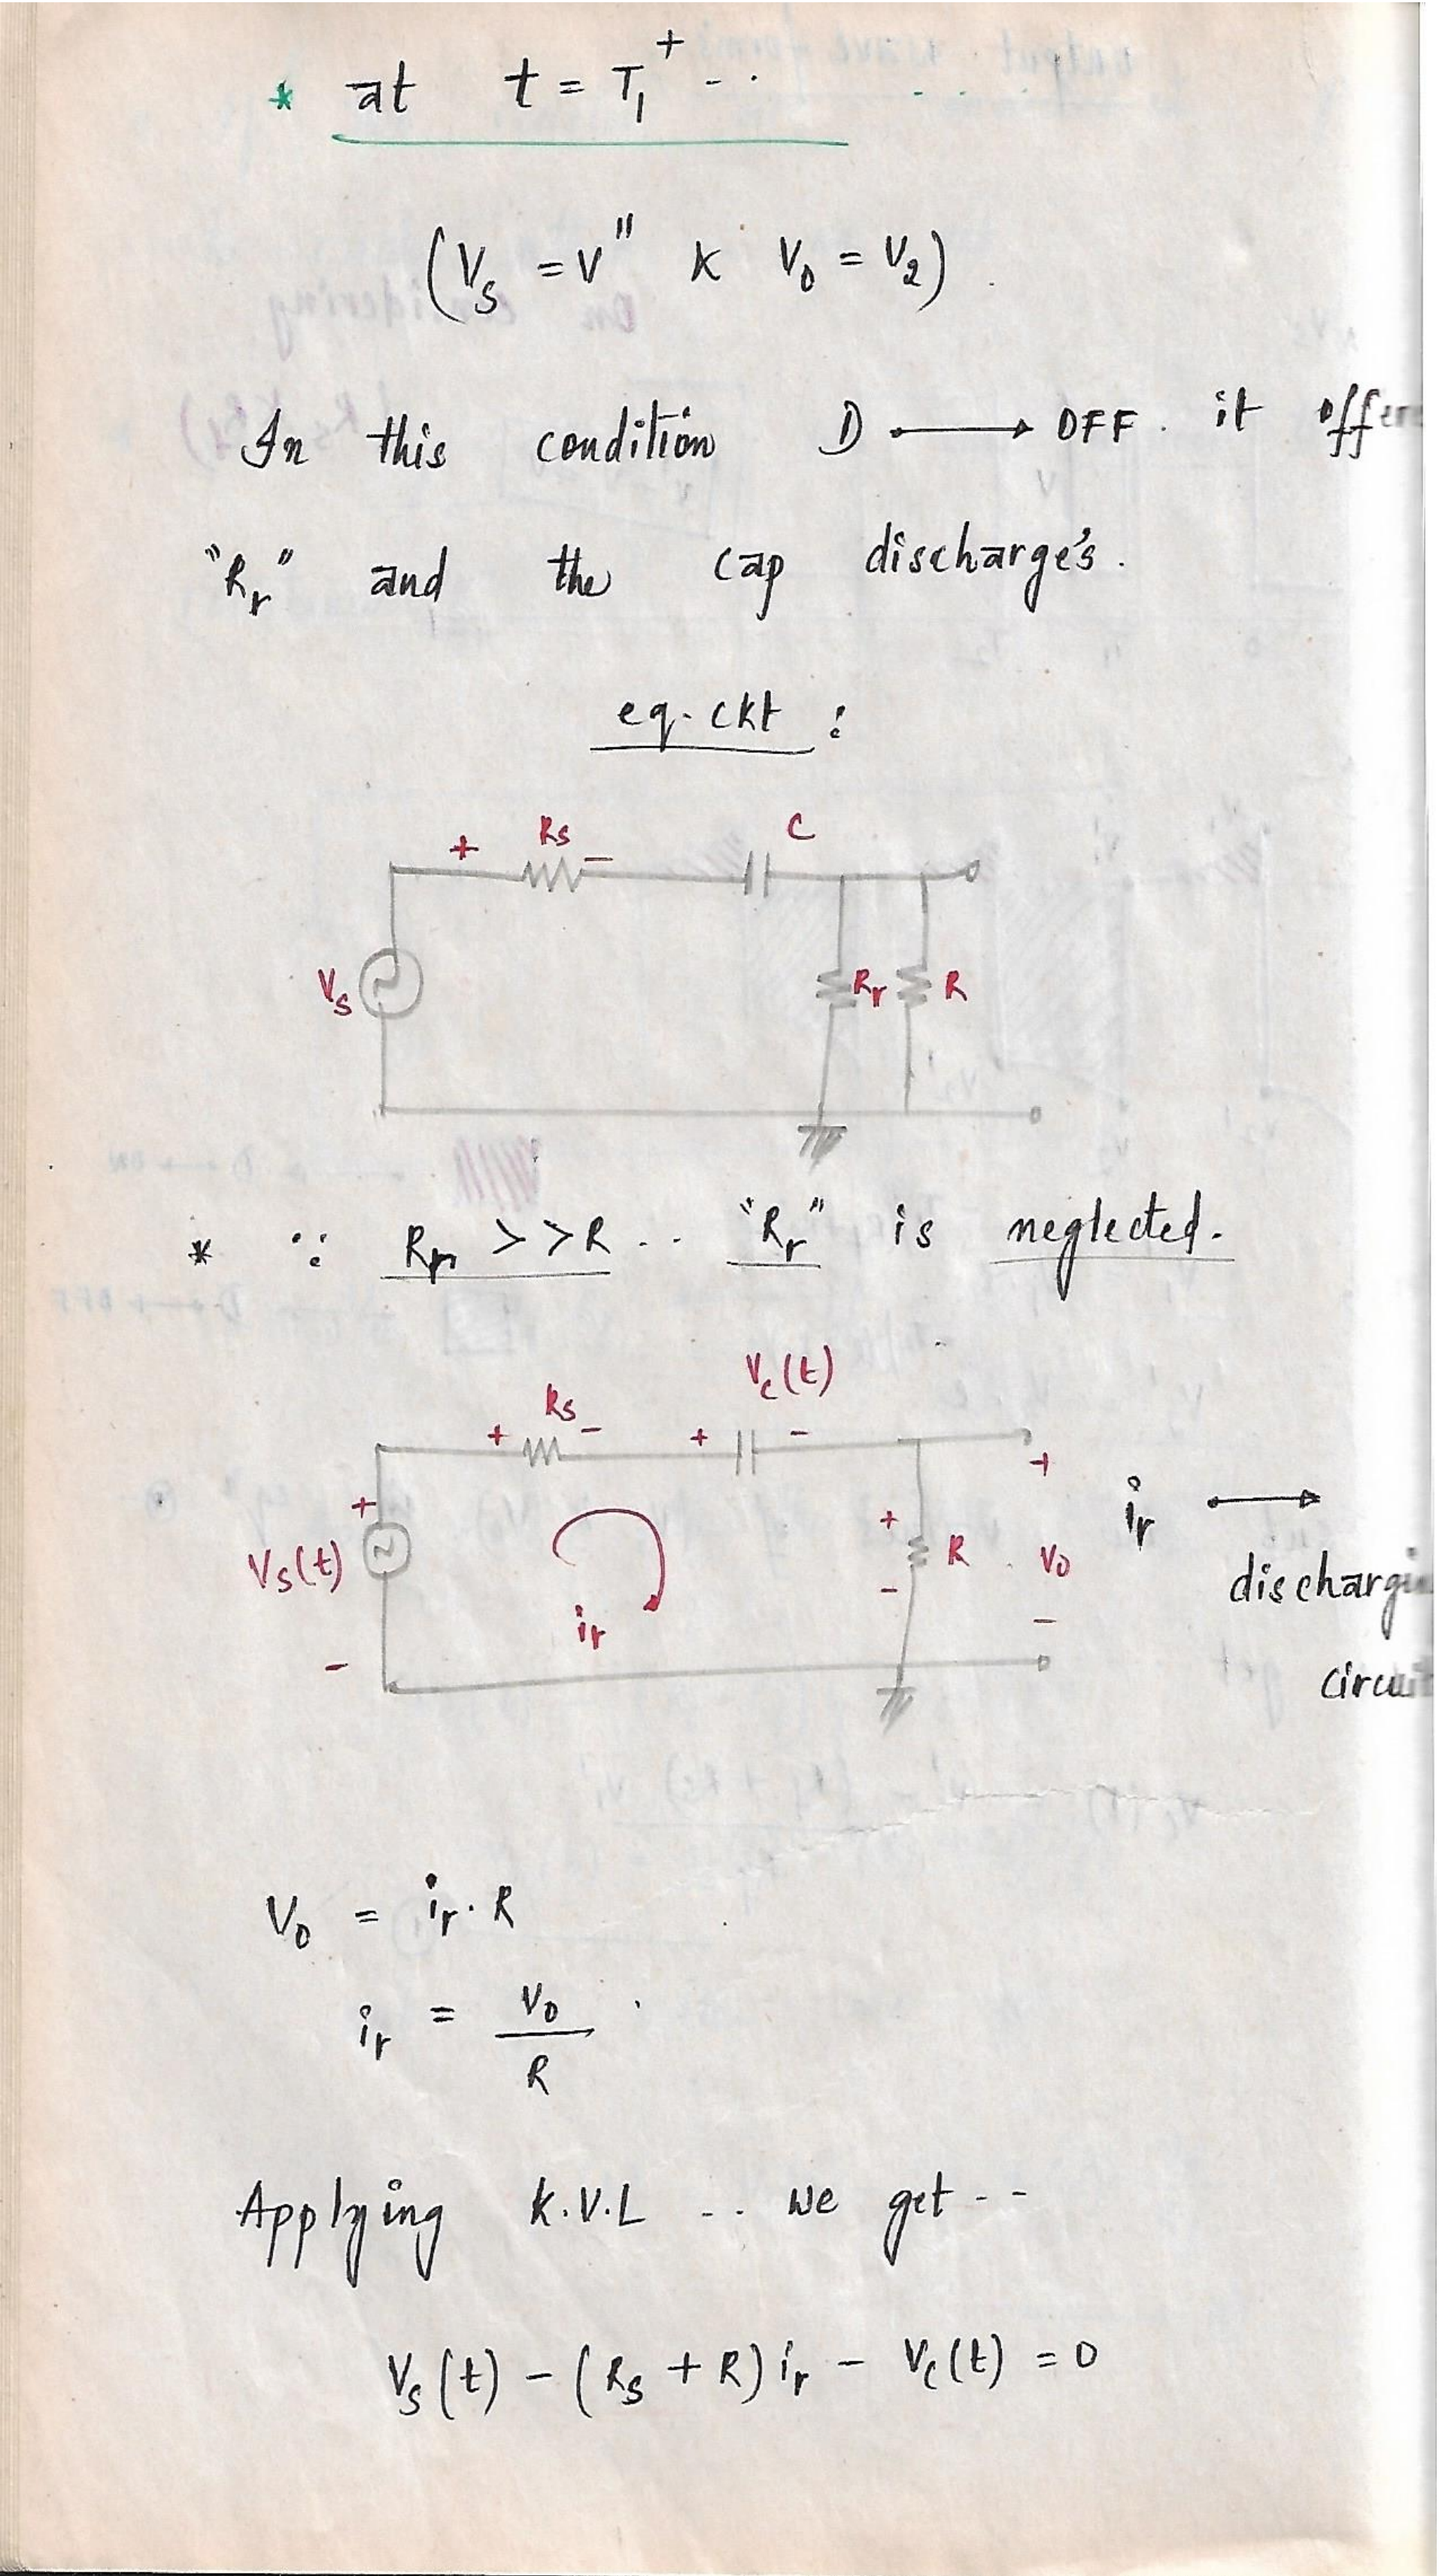 * at t = T₁⁺ - .
(Vs = V" & Vo = V₂) .
In this condition D → OFF . it offers
"Rr" and the cap discharge's .
eq. ckt :
+ Rs - C
Vs Rr R
* ∵ Rr >>R .. "Rr" is neglected .
Vc(t)
+ Rs - + -
+ Vs(t) - ir + R - + Vo -
ir → discharging circuit
Vo = ir . R
ir = Vo / R
Applying K.V.L .. we get - -
Vs(t) - (Rs + R) ir - Vc(t) = 0